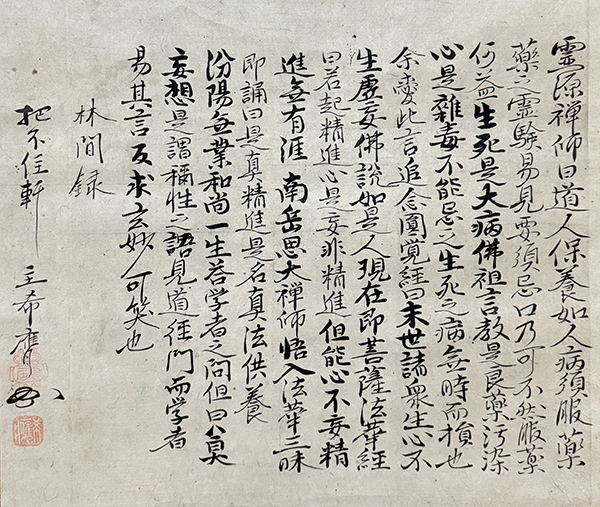 霊源禅师曰道人保養如人病須服藥
藥之霊験易見要須忌口乃可不然服藥
何益生死是大病佛祖言教是良藥污染
心是雜毒不能忌之生死之病無時而損也
余愛此言追念圓覚經曰末世諸衆生心不
生虚妄佛說如是人現在即菩薩法華經
曰若起精進心是妄非精進但能心不妄精
進無有涯南岳思大禅師悟入法華三昧
即誦曰是真精進是名真法供養
汾陽無業和尚一生荅学者之問但曰莫
妄想是謂稱性之語見道徑門而学者
易其言反求玄妙人可笑也
林間録
把不住軒
王希膺書